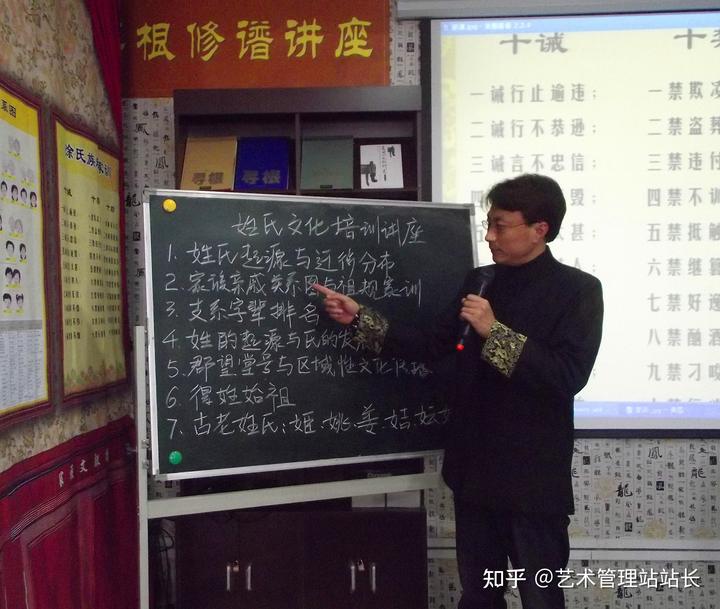 根修谱讲座
寻根
寻根
徐氏族
十诫
一诫行止逾违；
二诫行不恭逊；
三诫言不忠信；
毁
大甚；
人；
一禁欺凌
二禁盗葬
三禁违付
四禁不
五禁抵触
六禁继
七禁好
八禁酗酒
九禁刁唆
姓氏文化培训讲座
1. 姓氏起源与迁徙分布
2. 家族亲戚关系图与祖规家训
3. 支系字辈排名
4. 姓的起源与氏的发
5. 郡望堂号与区域性文化
6. 得姓始祖
7. 古老姓氏：姬、姚、姜、姞、妘
知乎 @艺术管理站站长